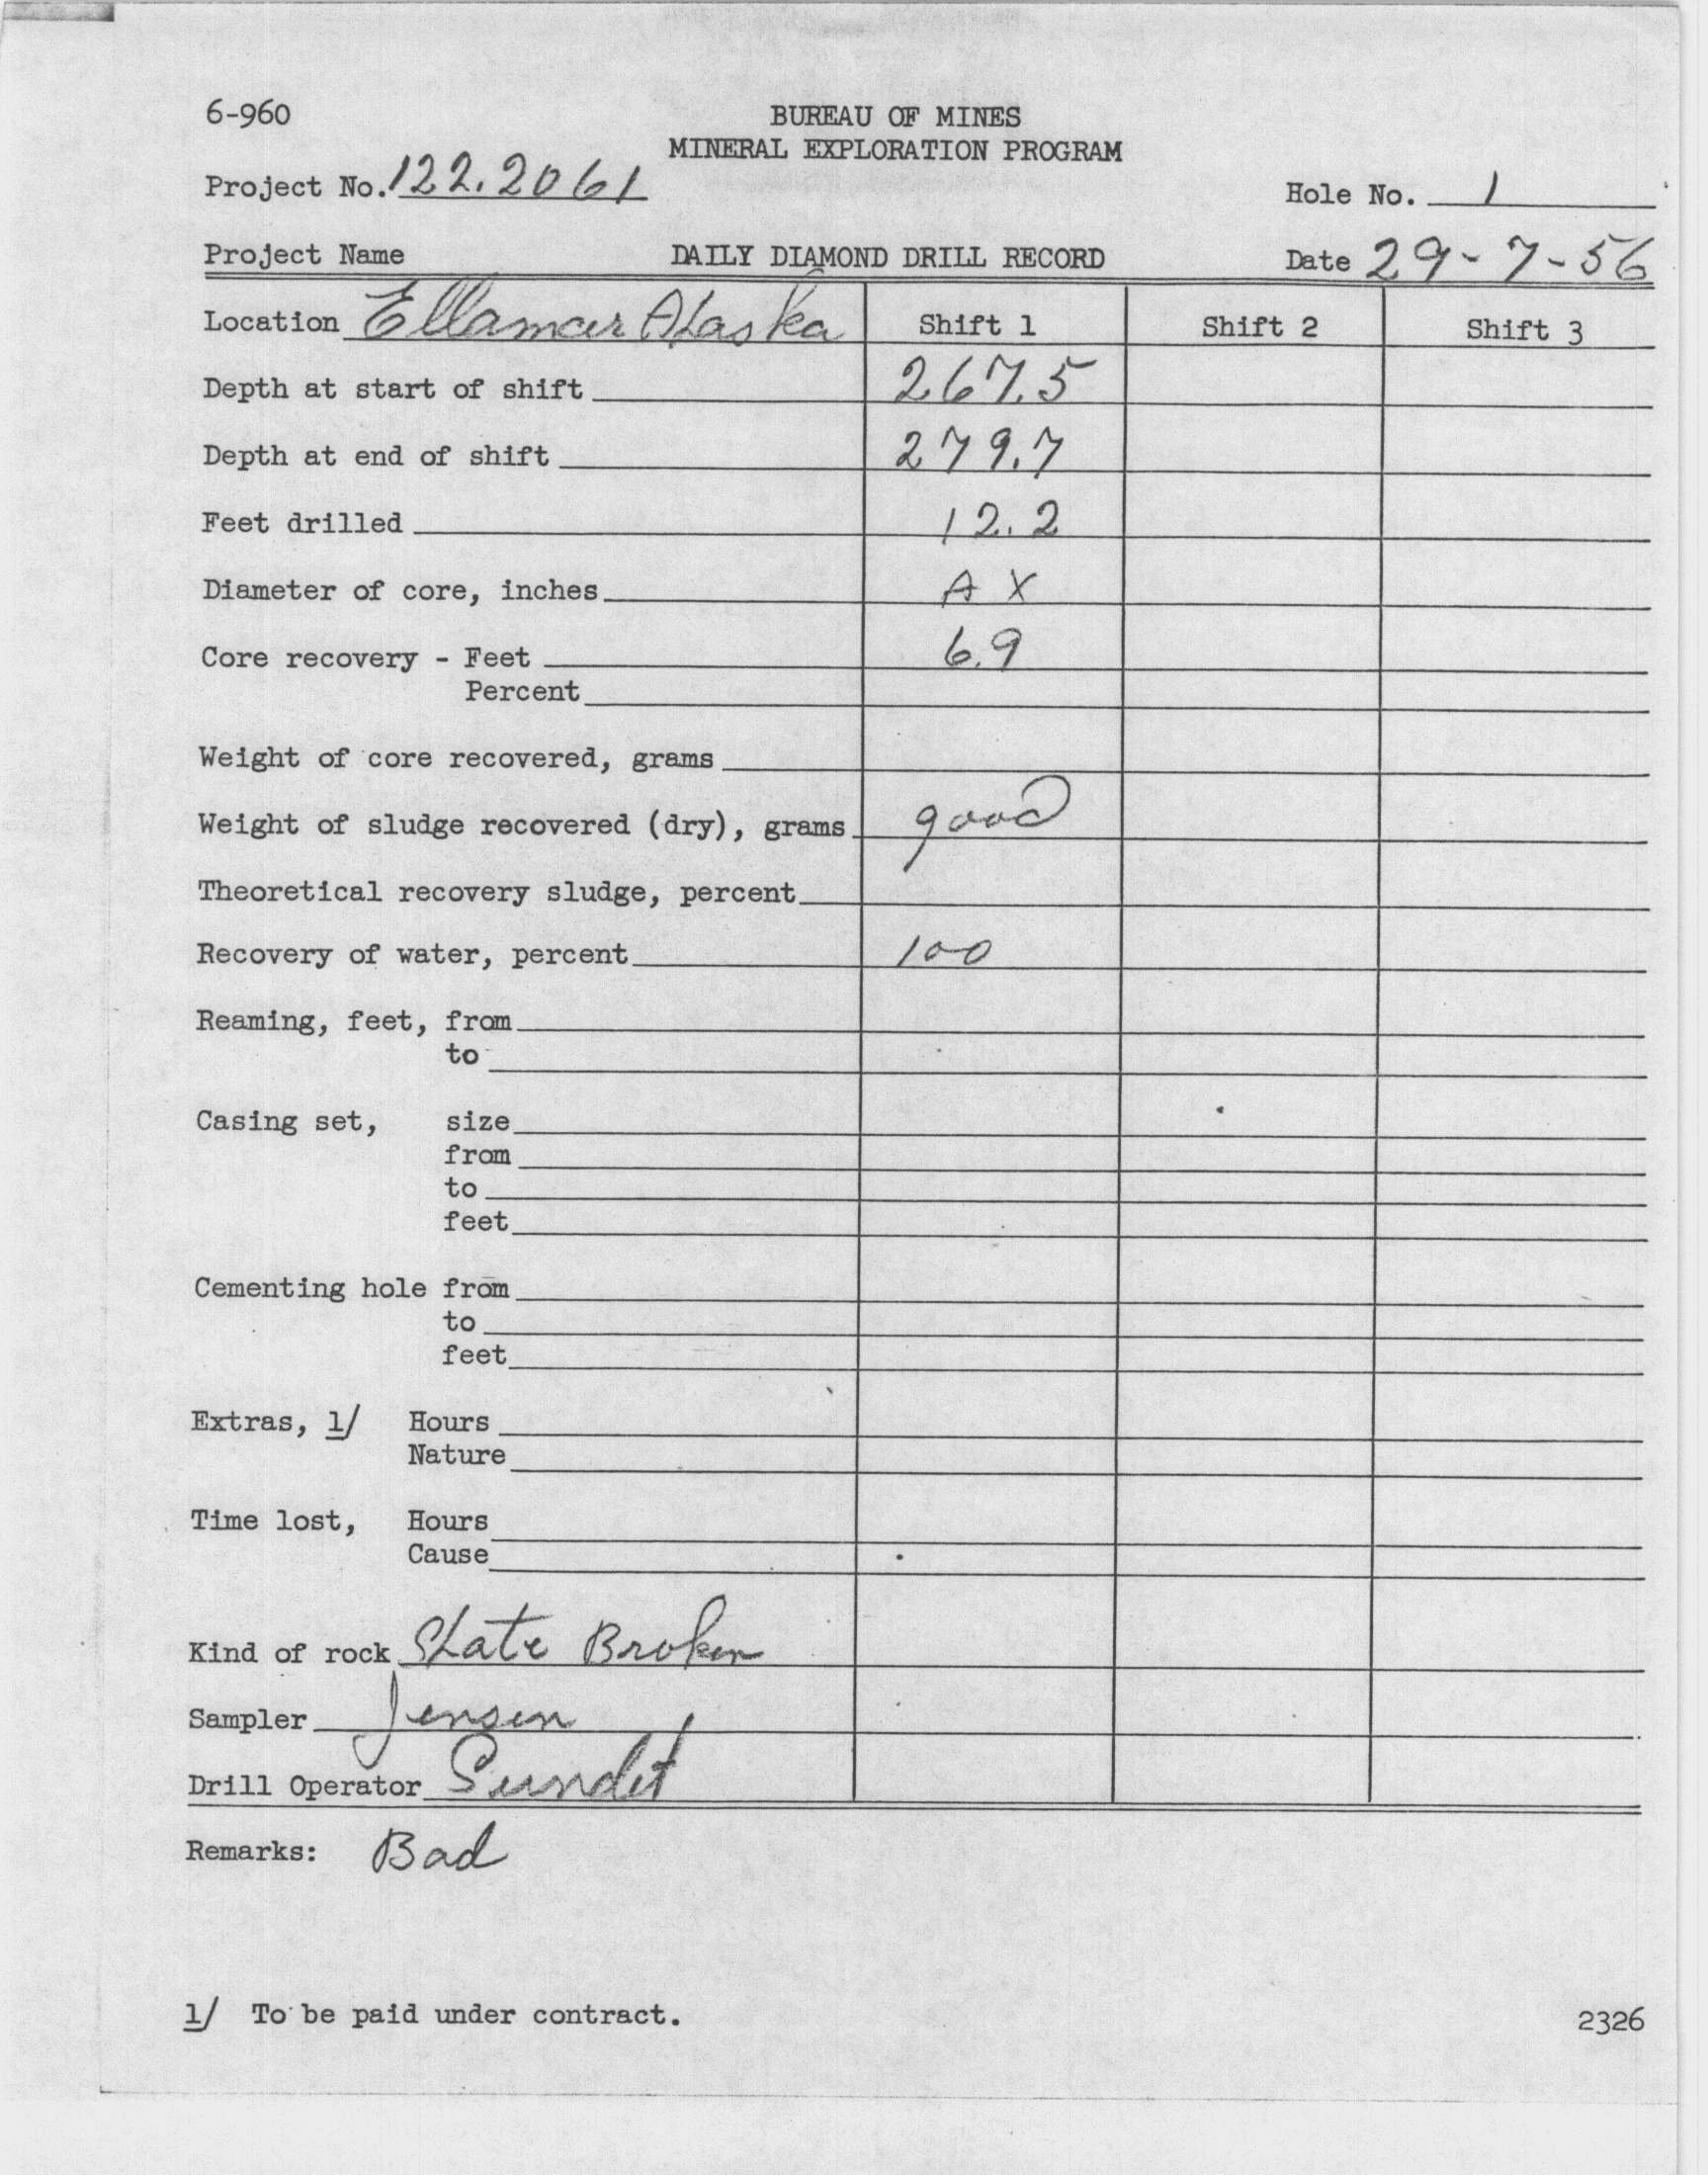 6-960
BUREAU OF MINES
MINERAL EXPLORATION PROGRAM
Project No. 122.2061
Hole No. 1
Project Name
DAILY DIAMOND DRILL RECORD
Date 29-7-56
Location Ellamar Alaska Shift 1 Shift 2 Shift 3
Depth at start of shift 267.5
Depth at end of shift 279.7
Feet drilled 12.2
Diameter of core, inches AX
Core recovery - Feet 6.9
Percent
Weight of core recovered, grams
Weight of sludge recovered (dry), grams good
Theoretical recovery sludge, percent
Recovery of water, percent 100
Reaming, feet, from
to
Casing set, size
from
to
feet
Cementing hole from
to
feet
Extras, 1/ Hours
Nature
Time lost, Hours
Cause
Kind of rock Slate Broken
Sampler Jensen
Drill Operator Sundt
Remarks: Bad
1/ To be paid under contract.
2326